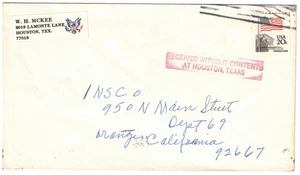 W. H. MCKEE
2018 LAMONTE LANE
HOUSTON, TEX.
77018
USA
20c
RECEIVED WITHOUT CONTENTS
AT HOUSTON, TEXAS
INSCO
950 N Main Street
Dept 69
Orange, California
92667